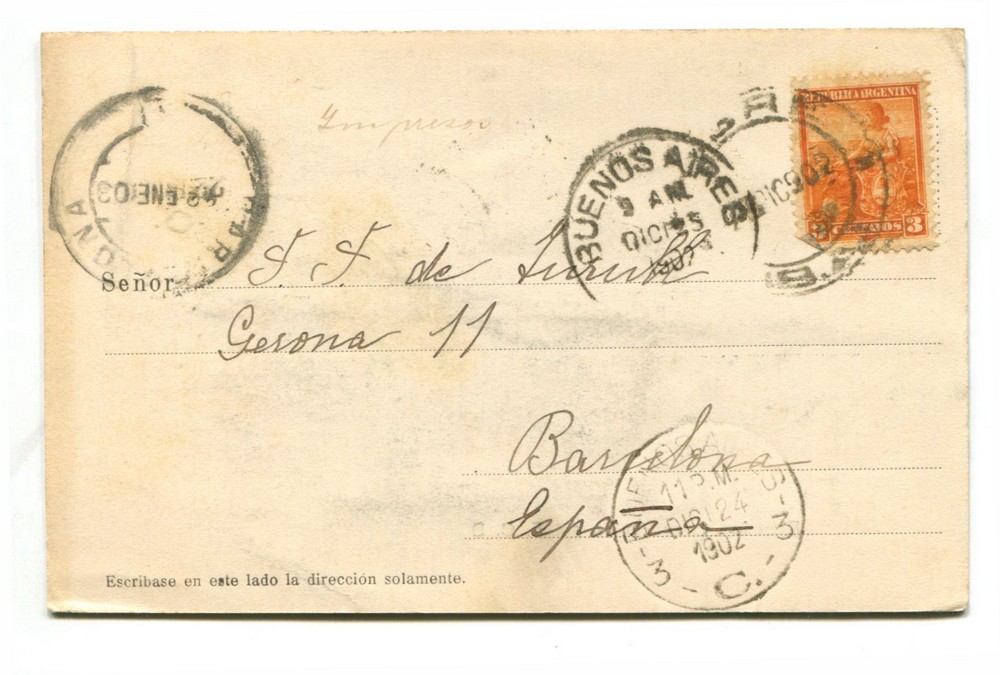 Impresos
REPUBLICA ARGENTINA
3 CENTAVOS 3
BUENOS AIRES
9 AM
DIC 25
1902
DIC 902
ENE 03
Señor J. J. de
Gerona 11
Barcelona
España
BUENOS AIRES
11 P.M.
DIC 24
1902
3 - C. - 3
Escribase en este lado la dirección solamente.